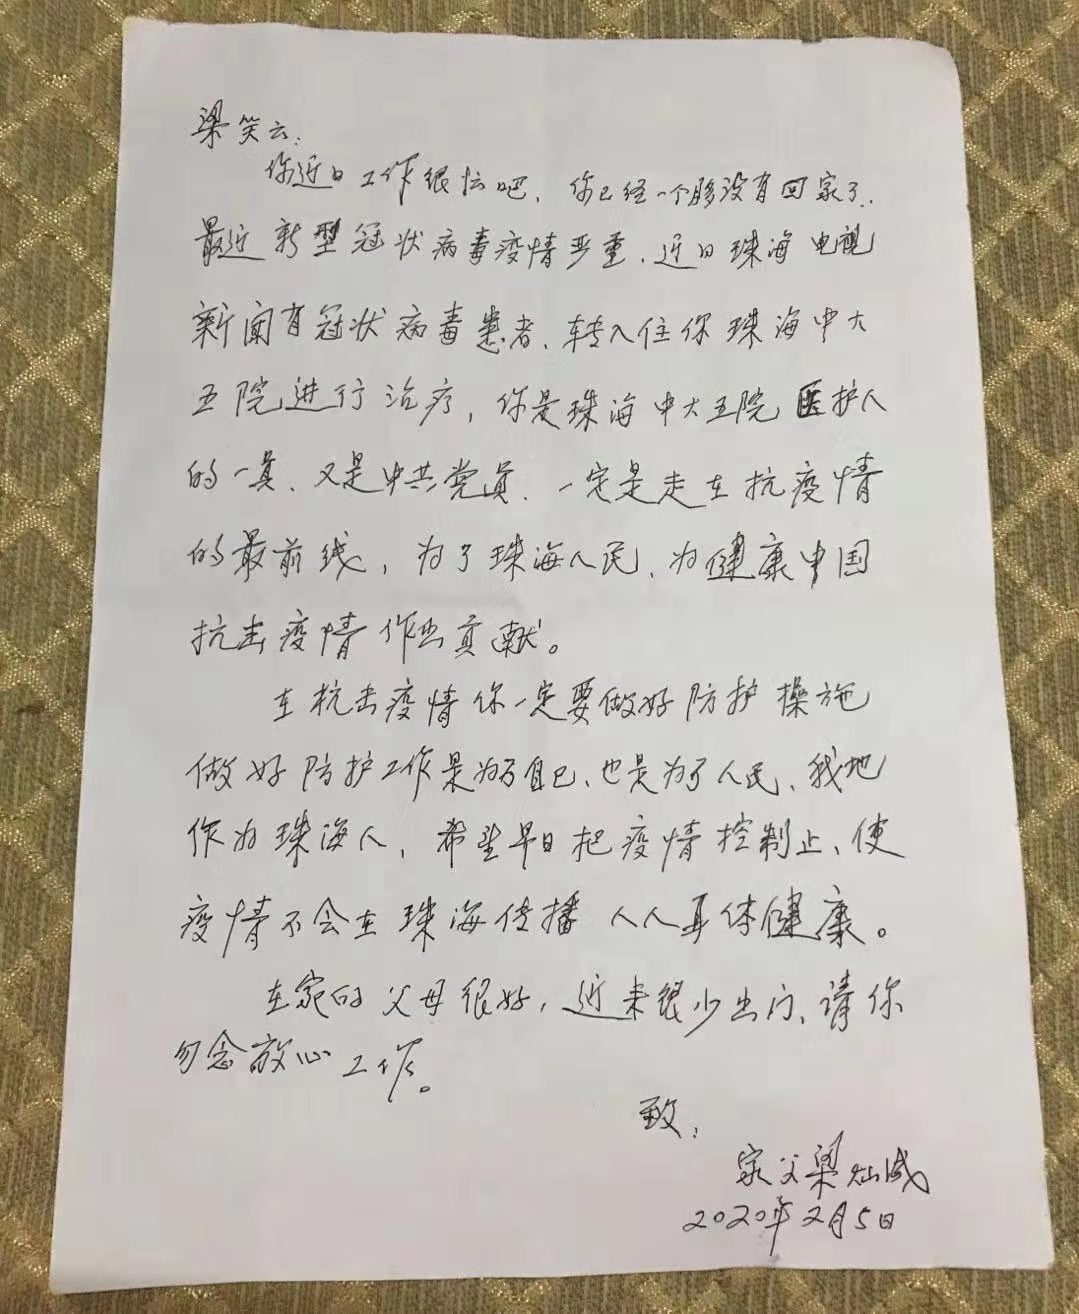 梁笑云:
你近日工作很忙吧,你已经一个多没有回家了.
最近新型冠状病毒疫情严重.近日珠海电视
新闻有冠状病毒患者、转入住你珠海中大
五院进行治疗,你是珠海中大五院医护人
的一员、又是中共党员.一定是走在抗疫情
的最前线,为了珠海人民、为健康中国
抗击疫情作出贡献。
在抗击疫情你一定要做好防护操施
做好防护工作是为了自己、也是为了人民、我地
作为珠海人,希望早日把疫情控制止、使
疫情不会在珠海传播 人人身体健康。
在家的父母很好,近来很少出门、请你
勿念放心工作。
致:
家父梁灿成
2020年2月5日